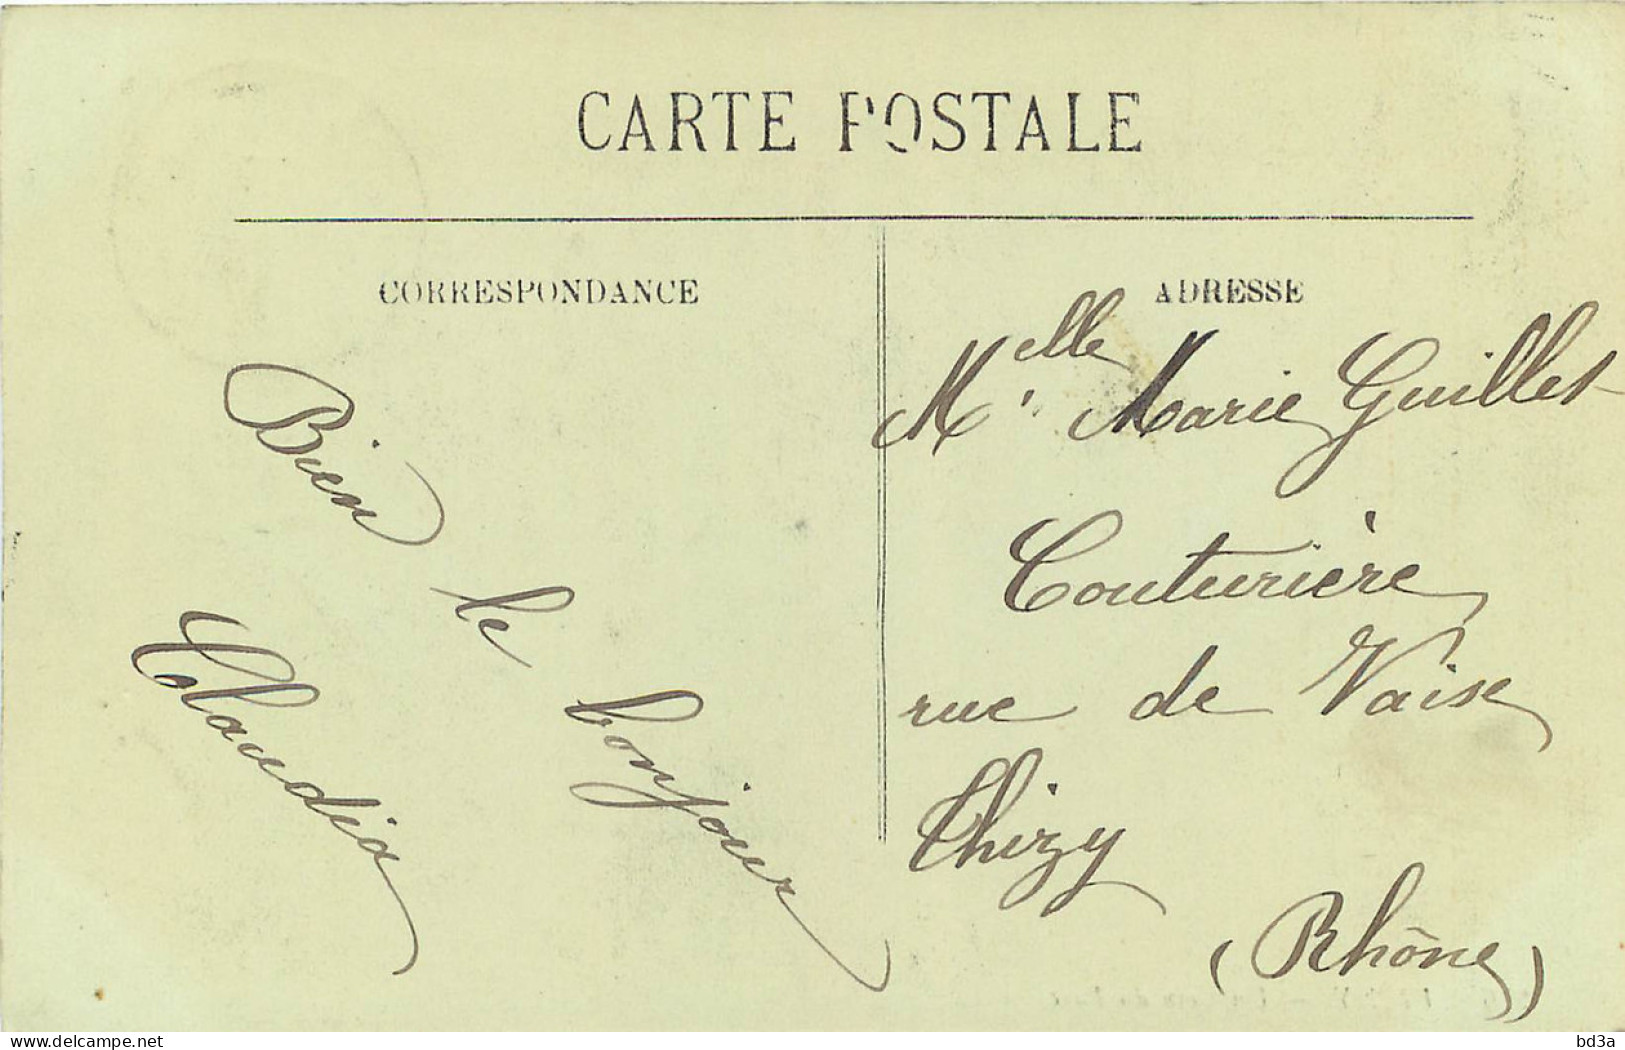 CARTE POSTALE
CORRESPONDANCE
Bien le bonjour
Claudia
ADRESSE
Melle Marie Guillet
Couturière
rue de Vaise
Thizy
(Rhône)
delcampe.net
bd3a